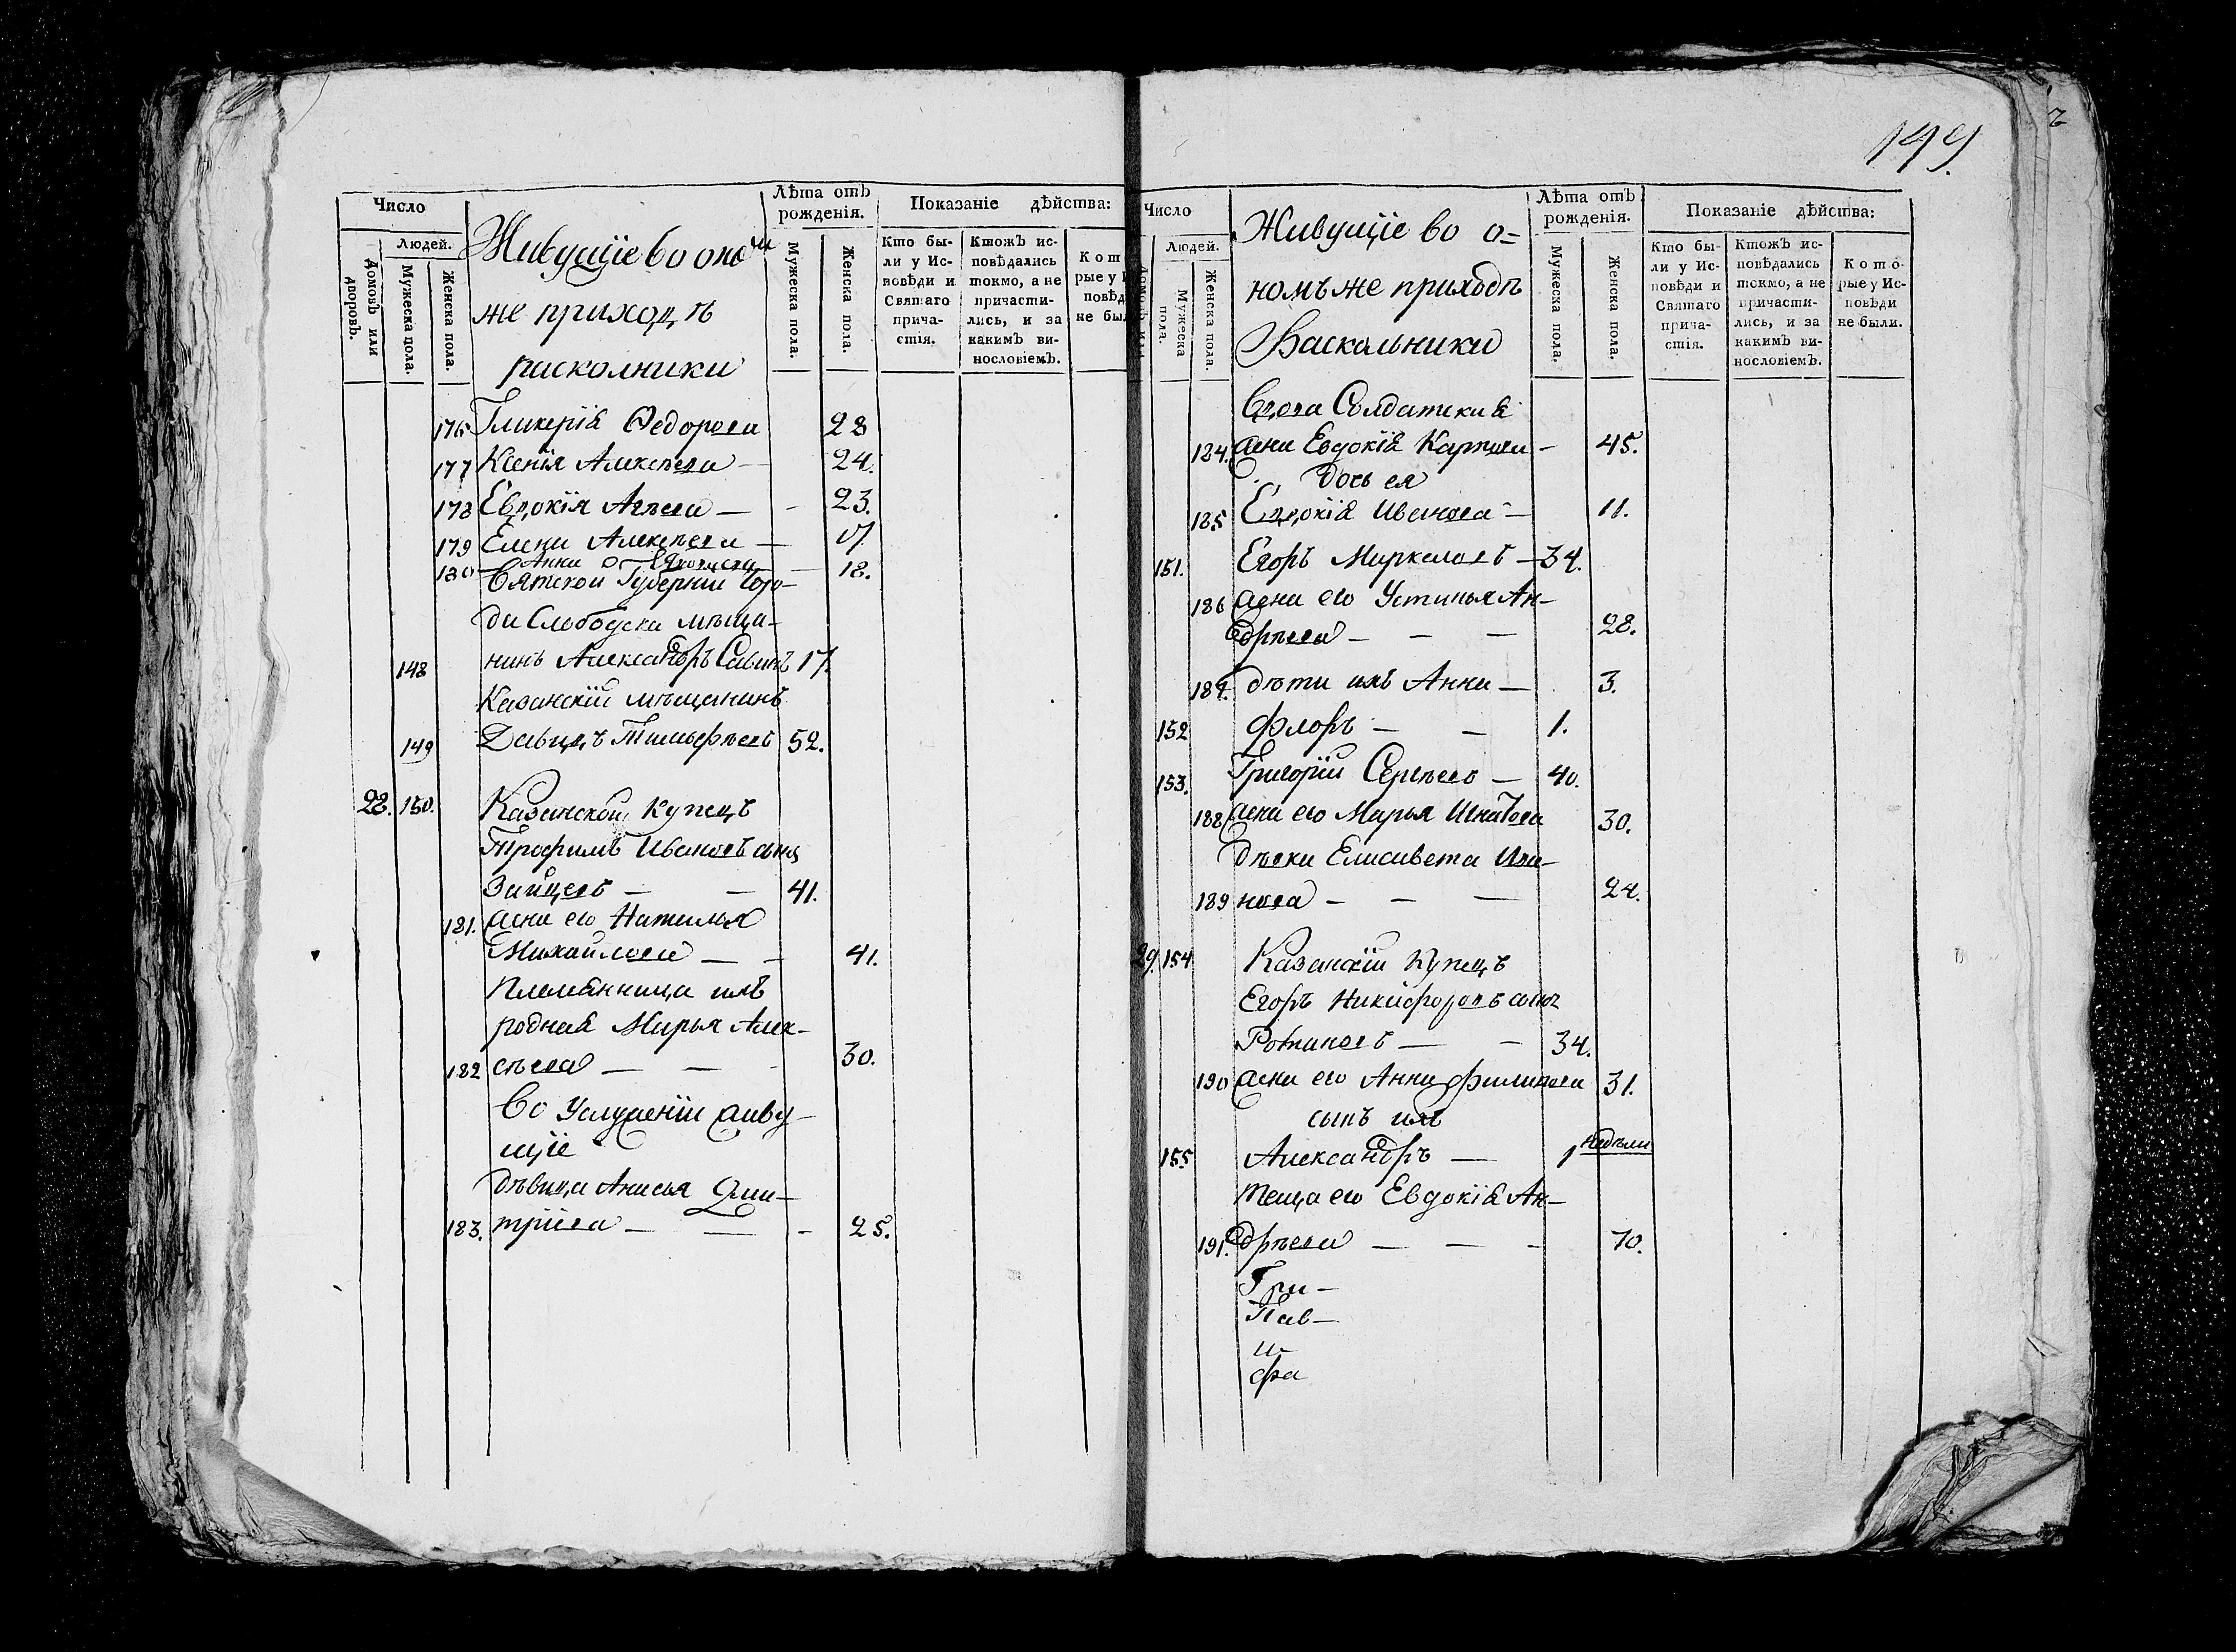 Число
Людей.
Домовъ или дворовъ.
Мужеска пола.
Женска пола.
Живущіе во ономъ
же приходѣ
расколники
Лѣта отъ рожденія.
Мужеска пола.
Женска пола.
Показаніе дѣйства:
Кто были у Исповѣди и Святаго причастія.
Ктожъ исповѣдались токмо, а не причастились, и за какимъ винословіемъ.
176 Гликерія Федорова 28
177 Ксенія Алексѣева — 24.
178 Евдокія Агѣева — - 23.
179 Елена Алексѣева — 17
180 Анна Яковлева — 18.
Вятской Губерніи Горо-
да Слободска мѣща-
148 нинъ Александръ Савинъ 17.
Казанскій мѣщанинъ
149 Давидъ Тимофѣевъ 52.
28. 150. Казанской купецъ
Трофимъ Ивановъ сынъ
Зайцевъ — — 41.
181. жена его Наталья
Михайлова — - 41.
Племянница ихъ
родная Марья Алек-
182 сѣева — — - 30.
Во Услуженіи живу-
щіе
дѣвица Анисья Дми-
183. тріева — — - 25.
149.
Число
Людей.
Мужеска пола.
Женска пола.
Живущіе во о=
номъ же приходѣ
Раскольники
Лѣта отъ рожденія.
Мужеска пола.
Женска пола.
Показаніе дѣйства:
Кто были у Исповѣди и Святаго причастія.
Ктожъ исповѣдались токмо, а не причастились, и за какимъ винословіемъ.
Которые у Исповѣди не были.
Вдова Солдатская
184. жена Евдокія Карпова — 45.
дочь ея
185 Евдокія Иванова — 11.
151. Егоръ Маркеловъ — 34.
186 жена его Устинья Ан-
дрѣева — — — 28.
187. дѣти ихъ Анна — 3.
152 Флоръ — — 1.
153. Григорій Сергѣевъ — 40.
188 жена его Марья Игнатова 30.
дѣвка Елисавета Ива-
189 нова — — — 24.
29. 154 Казанскій купецъ
Егоръ Никифоровъ сынъ
Ротиновъ — - 34.
190 жена его Анна Филипова 31.
сынъ ихъ
155 Александръ — 1 недѣли
теща его Евдокія Ан-
191. дрѣева — — - 70.
Гри-
Пав-
и-
фа